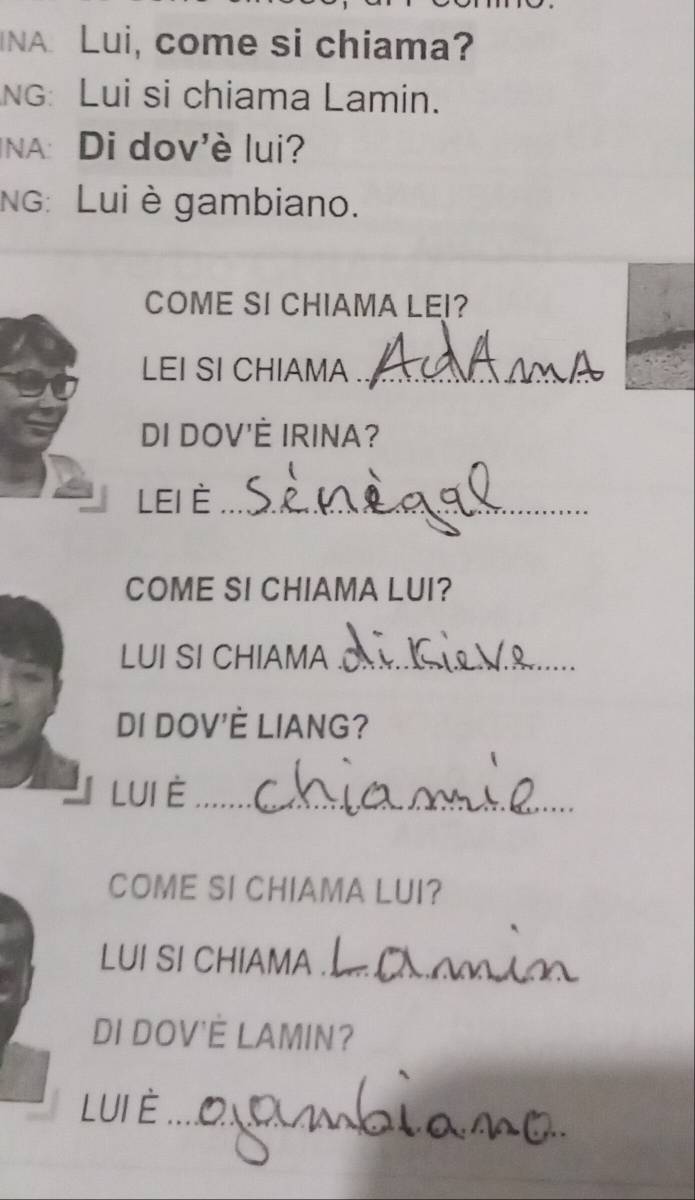 INA: Lui, come si chiama?
NG: Lui si chiama Lamin.
INA: Di dov'è lui?
NG: Lui è gambiano.
COME SI CHIAMA LEI?
LEI SI CHIAMA ..AdAmA
DI DOV'È IRINA?
LEI È ...Sénègal......
COME SI CHIAMA LUI?
LUI SI CHIAMA .di Kieve....
DI DOV'È LIANG?
LUI È ......chiamie...
COME SI CHIAMA LUI?
LUI SI CHIAMA .Lamin
DI DOV'È LAMIN?
LUI È ...gambiano..